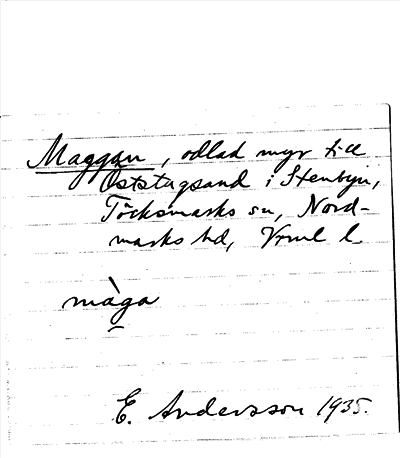 Maggan, odlad myr till
Öststugsand i Stenbyn,
Töcksmarks sn, Nord-
marks hd, Vrml l.
màga
E. Andersson 1935.